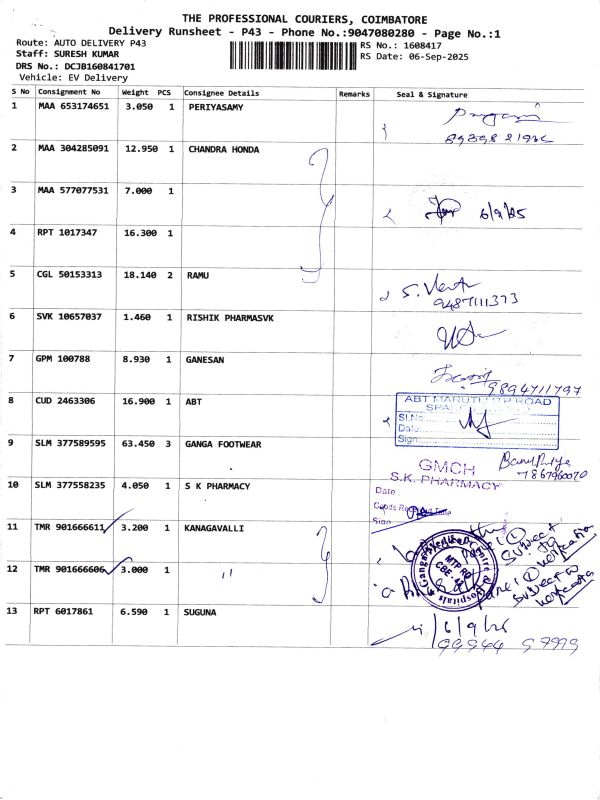 THE PROFESSIONAL COURIERS, COIMBATORE
Delivery Runsheet - P43 - Phone No.:9047080280 - Page No.:1
Route: AUTO DELIVERY P43
Staff: SURESH KUMAR
DRS No.: DCJB160841701
Vehicle: EV Delivery
RS No.: 1608417
RS Date: 06-Sep-2025
S No Consignment No Weight PCS Consignee Details Remarks Seal & Signature
1 MAA 653174651 3.050 1 PERIYASAMY
2 MAA 304285091 12.950 1 CHANDRA HONDA
3 MAA 577077531 7.000 1 6/9/25
4 RPT 1017347 16.300 1
5 CGL 50153313 18.140 2 RAMU
9487111373
6 SVK 10657037 1.460 1 RISHIK PHARMASVK
7 GPM 100788 8.930 1 GANESAN
9894711797
8 CUD 2463306 16.900 1 ABT
ABT MARUTI MTP ROAD
Sl.No
Date
Sign
9 SLM 377589595 63.450 3 GANGA FOOTWEAR
7867960070
GMCH
S.K. PHARMACY
10 SLM 377558235 4.050 1 S K PHARMACY
Date
Sign
11 TMR 901666611 3.200 1 KANAGAVALLI
subject to
verification
12 TMR 901666606 3.000 1 "
MTP RD
subject to
verification
13 RPT 6017861 6.590 1 SUGUNA
6/9/25
99944 97999